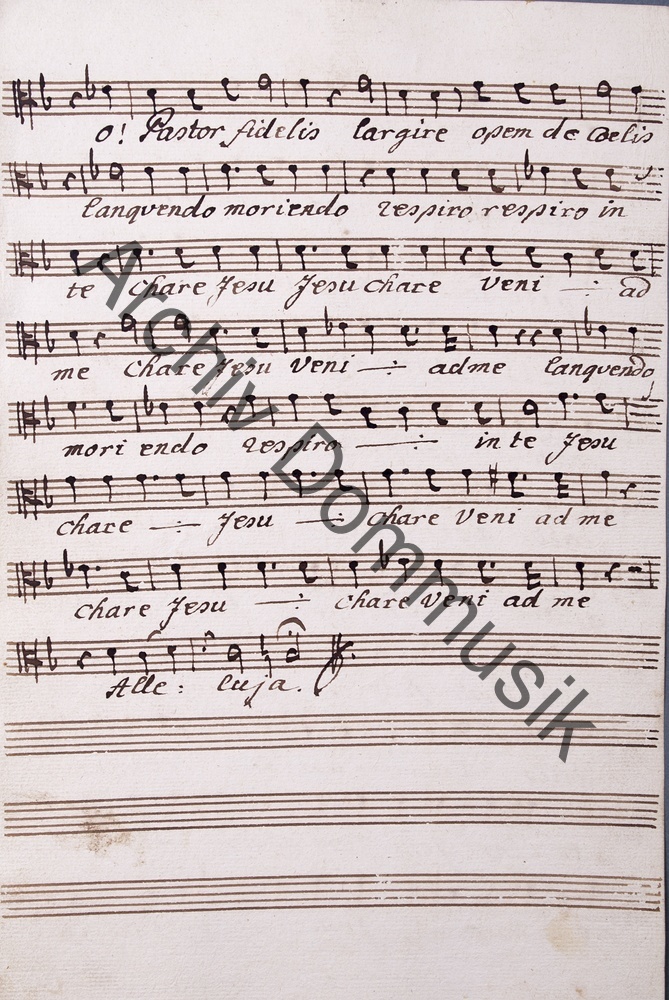 O! Pastor fidelis largire opem de Coelis
languendo moriendo respiro respiro in
te Chare Jesu Jesu chare Veni –:– ad
me Chare Jesu Veni –:– ad me languendo
moriendo respiro –:– in te Jesu
chare –:– Jesu –:– Chare Veni ad me
chare Jesu –:– Chare Veni ad me
Alle: luja.
Archiv Dommusik